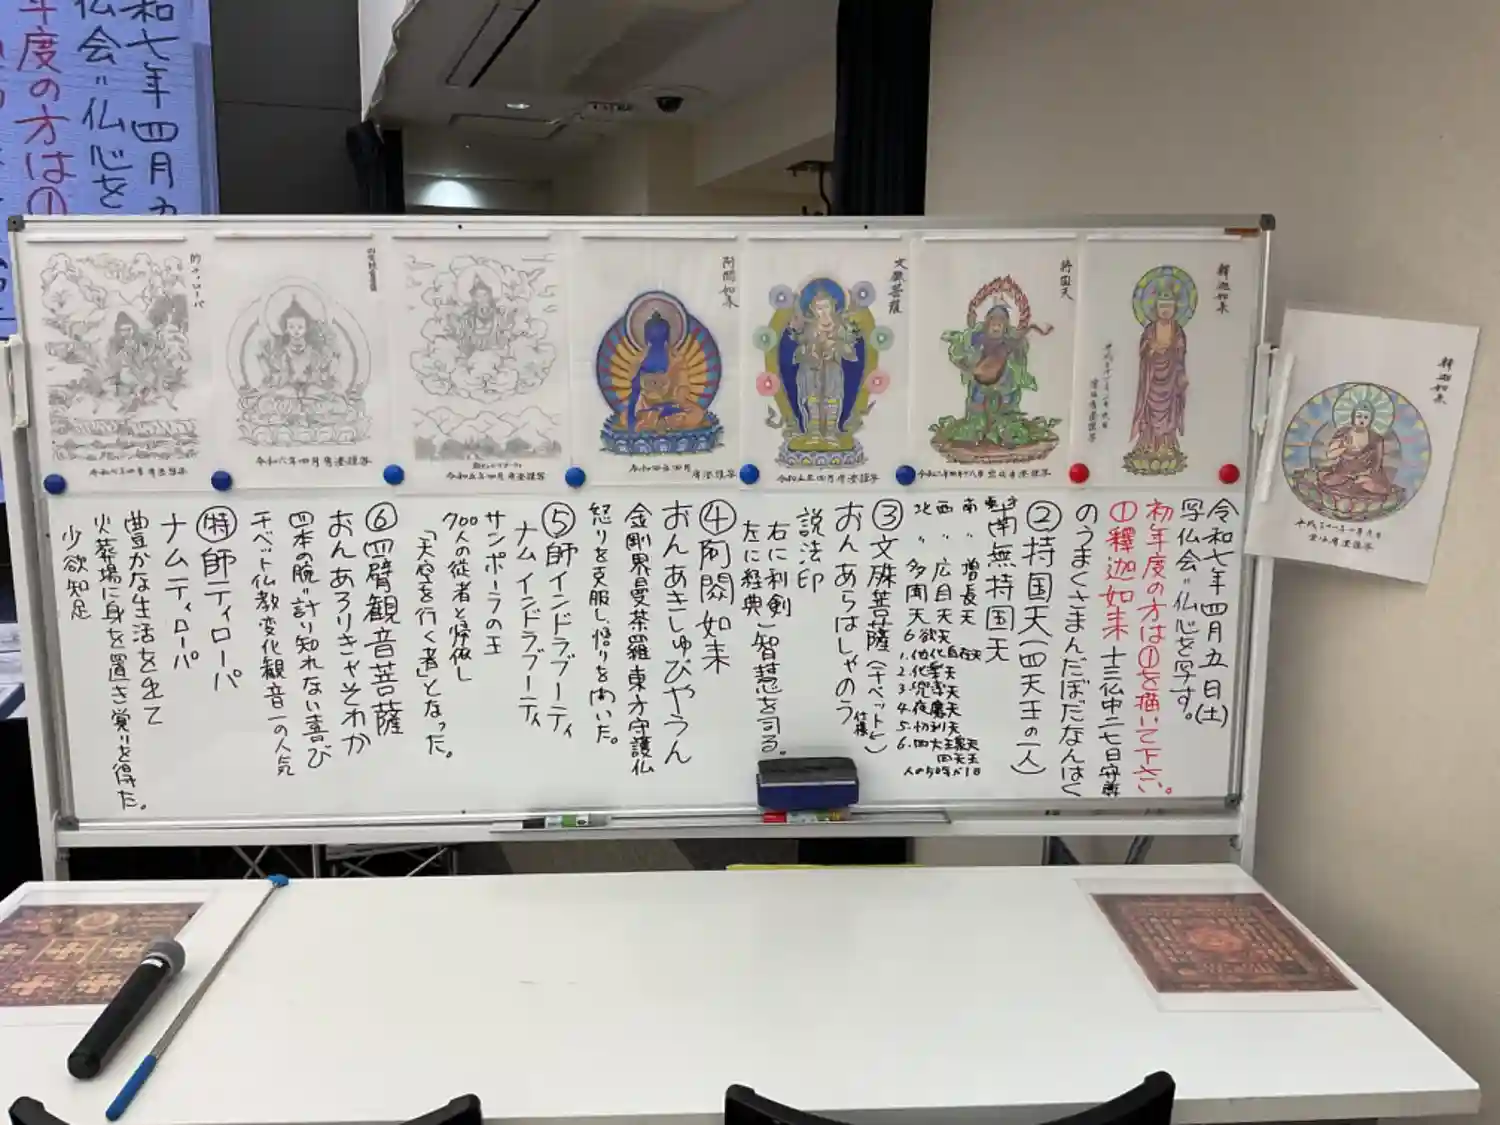 和七年四月五
仏会"仏心を
年度の方は①
釋迦如来
釋迦如来
持国天
文殊菩薩
阿閦如来
令和四年四月
令和五年四月
令和六年四月
令和七年四月五日(土)
写仏会"仏心を写す。
初年度の方は①を描いて下さい。
①釋迦如来 十三仏中二七日守護
のうまくさまんだぼだなんばく
②持国天(四天王の一人)
南無持国天
南 〃 増長天
西 〃 広目天
北 〃 多聞天
6欲天
1.他化自在天
2.化楽天
3.兜率天
4.夜摩天
5.忉利天
6.四大王衆天
四天王
人の50年が1日
③文殊菩薩(チベット仕様)
おんあらはしゃのう
説法印
右に利剣
左に経典)智慧を司る。
④阿閦如来
おんあきしゅびやうん
金剛界曼荼羅東方守護仏
怒りを克服し、悟りを開いた。
⑤師インドラブーティ
ナムインドラブーティ
サンポーラの王
700人の従者と帰依し
「天空を行く者」となった。
⑥四臂観音菩薩
おんあろりきゃそわか
四本の腕"計り知れない喜び
チベット仏教変化観音一の人気
㊕師ティローパ
ナムティローパ
豊かな生活を捨て
火葬場に身を置き覚りを得た。
少欲知足